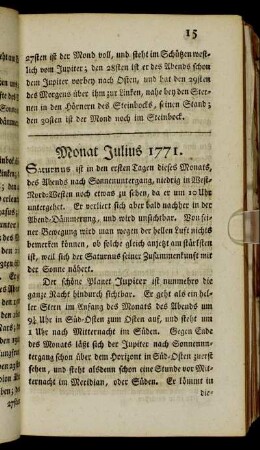 15
27sten ist der Mond voll, und steht im Schützen west-
lich vom Jupiter; den 28sten ist er des Abends schon
dem Jupiter vorbey nach Osten, und hat den 29sten
des Morgens über ihm zur Linken, nahe bey den Ster-
nen in den Hörnern des Steinbocks, seinen Stand;
den 30sten ist der Mond noch im Steinbock.
Monat Julius 1771.
Saturnus ist in den ersten Tagen dieses Monats,
des Abends nach Sonnenuntergang, niedrig in West-
Nord-Westen noch etwas zu sehen, da er um 10 Uhr
untergehet. Er verliert sich aber bald nachher in der
Abend-Dämmerung, und wird unsichtbar. Von sei-
ner Bewegung wird man wegen der hellen Luft nichts
bemerken können, ob solche gleich anjetzt am stärksten
ist, weil sich der Saturnus seiner Zusammenkunft mit
der Sonne nähert.
Der schöne Planet Jupiter ist nunmehro die
ganze Nacht hindurch sichtbar. Er geht als ein hel-
ler Stern im Anfang des Monats des Abends um
9¼ Uhr in Süd-Osten zum Osten auf, und steht um
1 Uhr nach Mitternacht im Süden. Gegen Ende
des Monats läßt sich der Jupiter nach Sonnenun-
tergang schon über dem Horizont in Süd-Osten zuerst
sehen, und steht alsdenn schon eine Stunde vor Mit-
ternacht im Meridian, oder Süden. Er kömmt in
die-